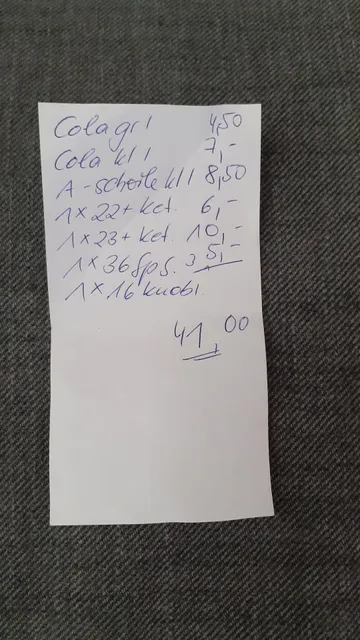 Cola gr 1 4,50
Cola kl 1 7,-
A-schorle kl 1 8,50
1x22+ket. 6,-
1x23+ket. 10,-
1x36 Sps. 5,-
1x16 knobl.
41,00